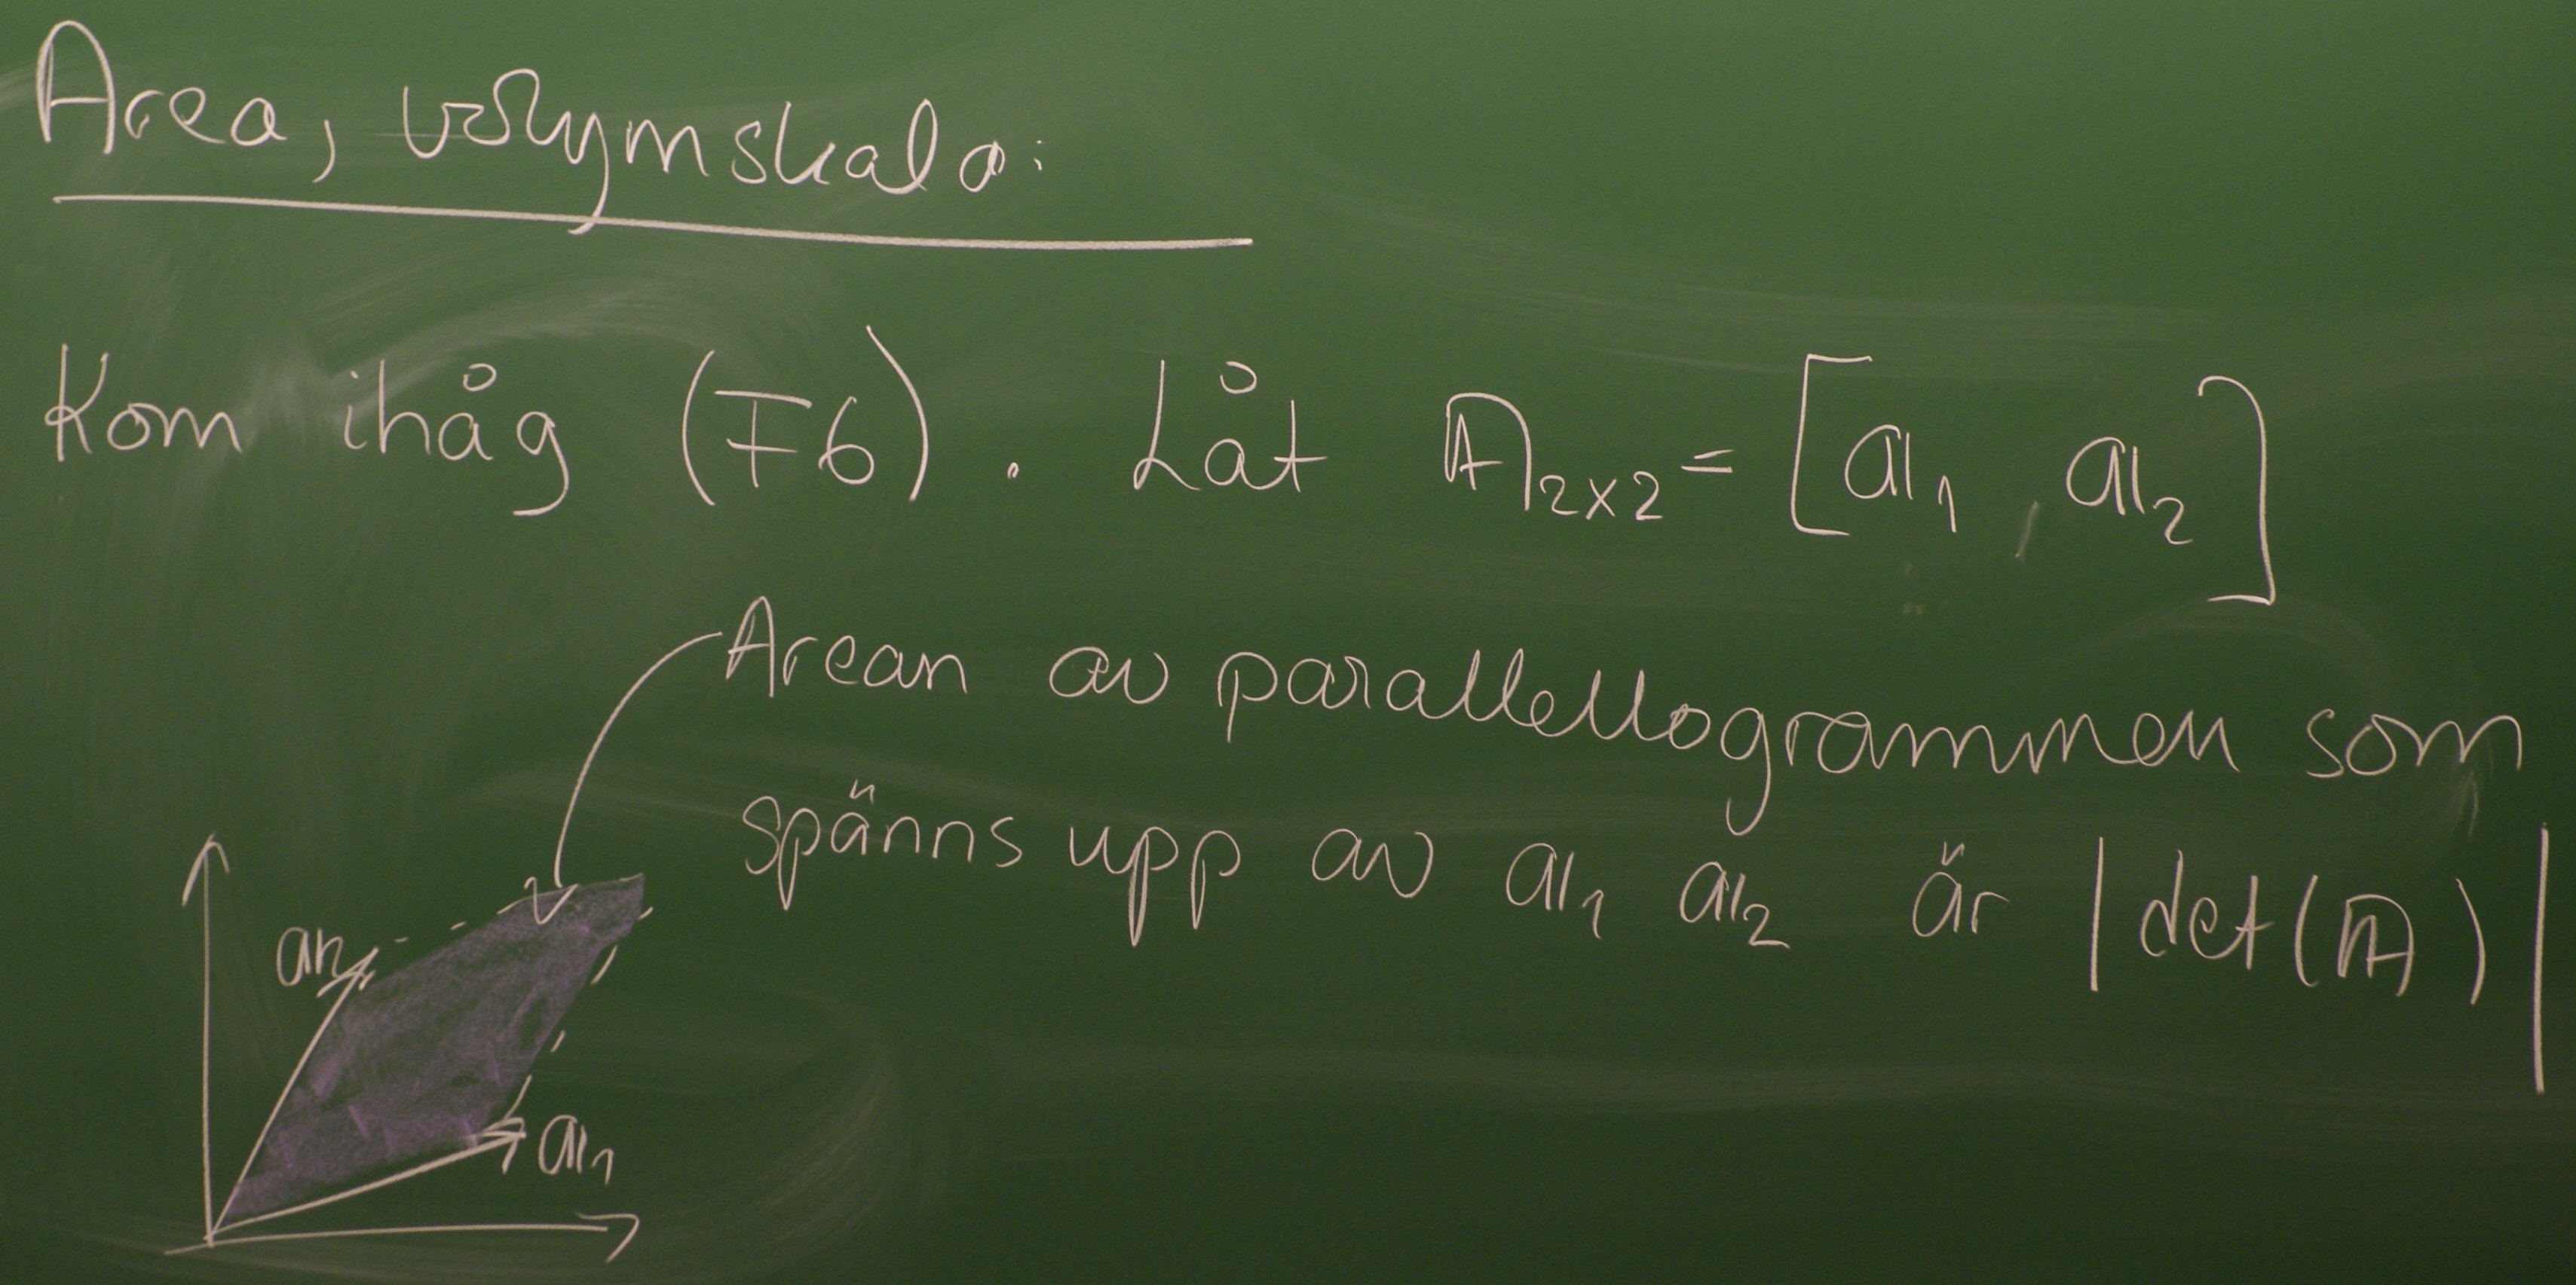 Area, volymskala:
Kom ihåg (F6). Låt 𝔸₂ₓ₂ = [𝕒₁, 𝕒₂]
Arean av parallellogrammen som
spänns upp av 𝕒₁ 𝕒₂ är |det(𝔸)|
𝕒₂
𝕒₁